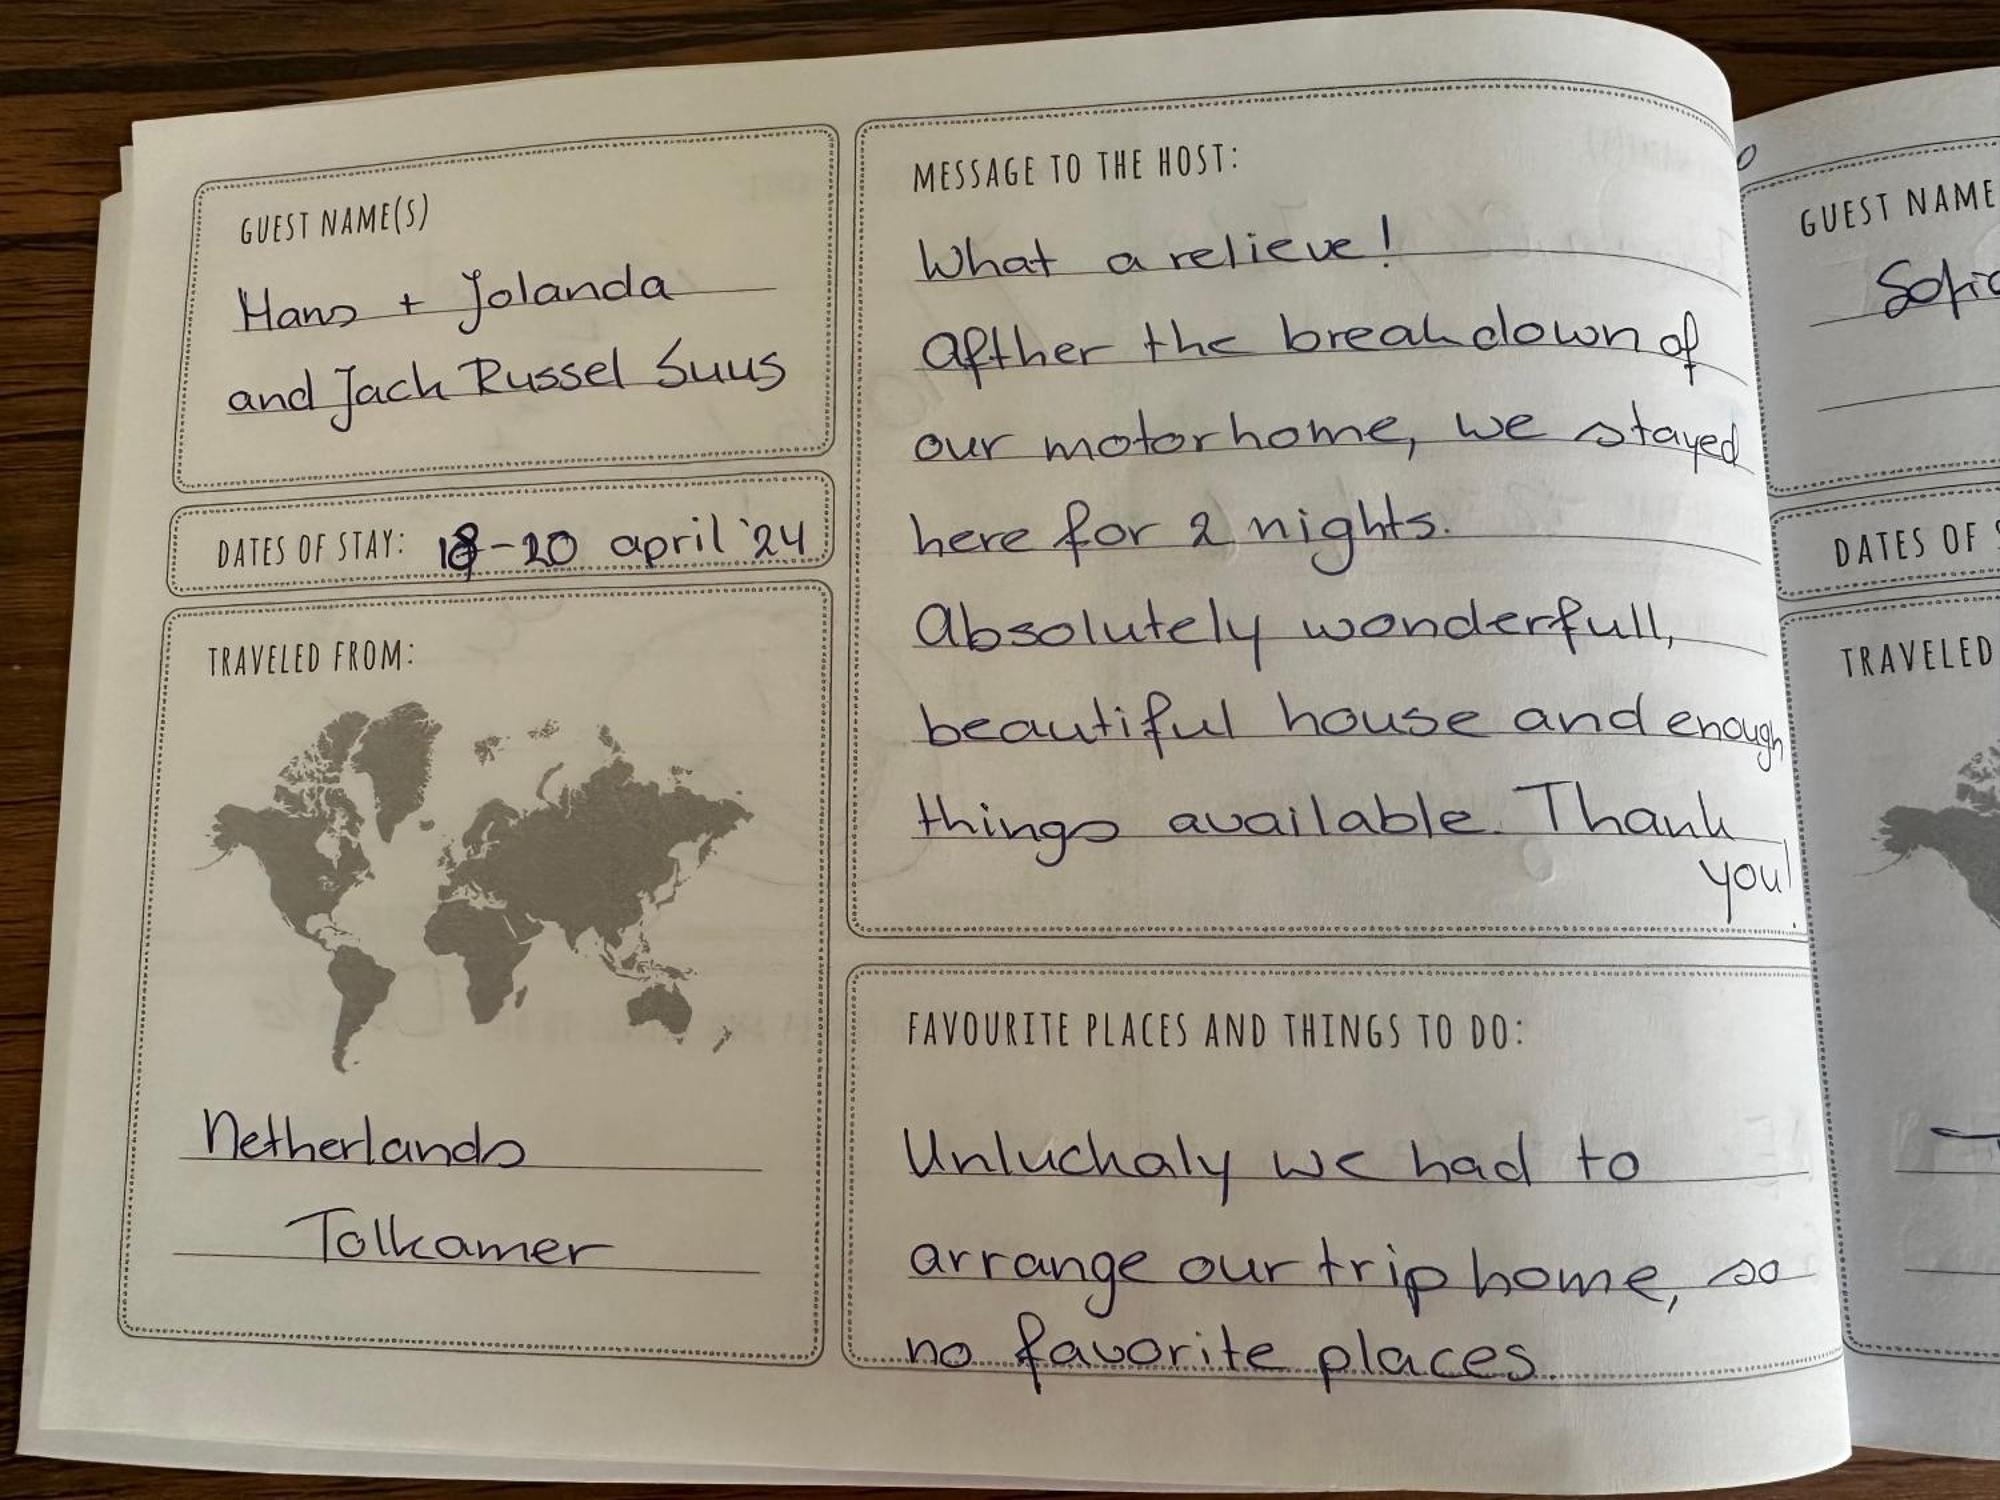 GUEST NAME(S)
Hans + Jolanda
and Jack Russel Suus
DATES OF STAY: 18-20 april '24
TRAVELED FROM:
Netherlands
Tolkamer
MESSAGE TO THE HOST:
What a relieve!
Afther the breakdown of
our motorhome, we stayed
here for 2 nights.
Absolutely wonderfull,
beautiful house and enough
things available. Thank
you!
FAVOURITE PLACES AND THINGS TO DO:
Unluckaly we had to
arrange our trip home, so
no favorite places.
GUEST NAME
DATES OF
TRAVELED